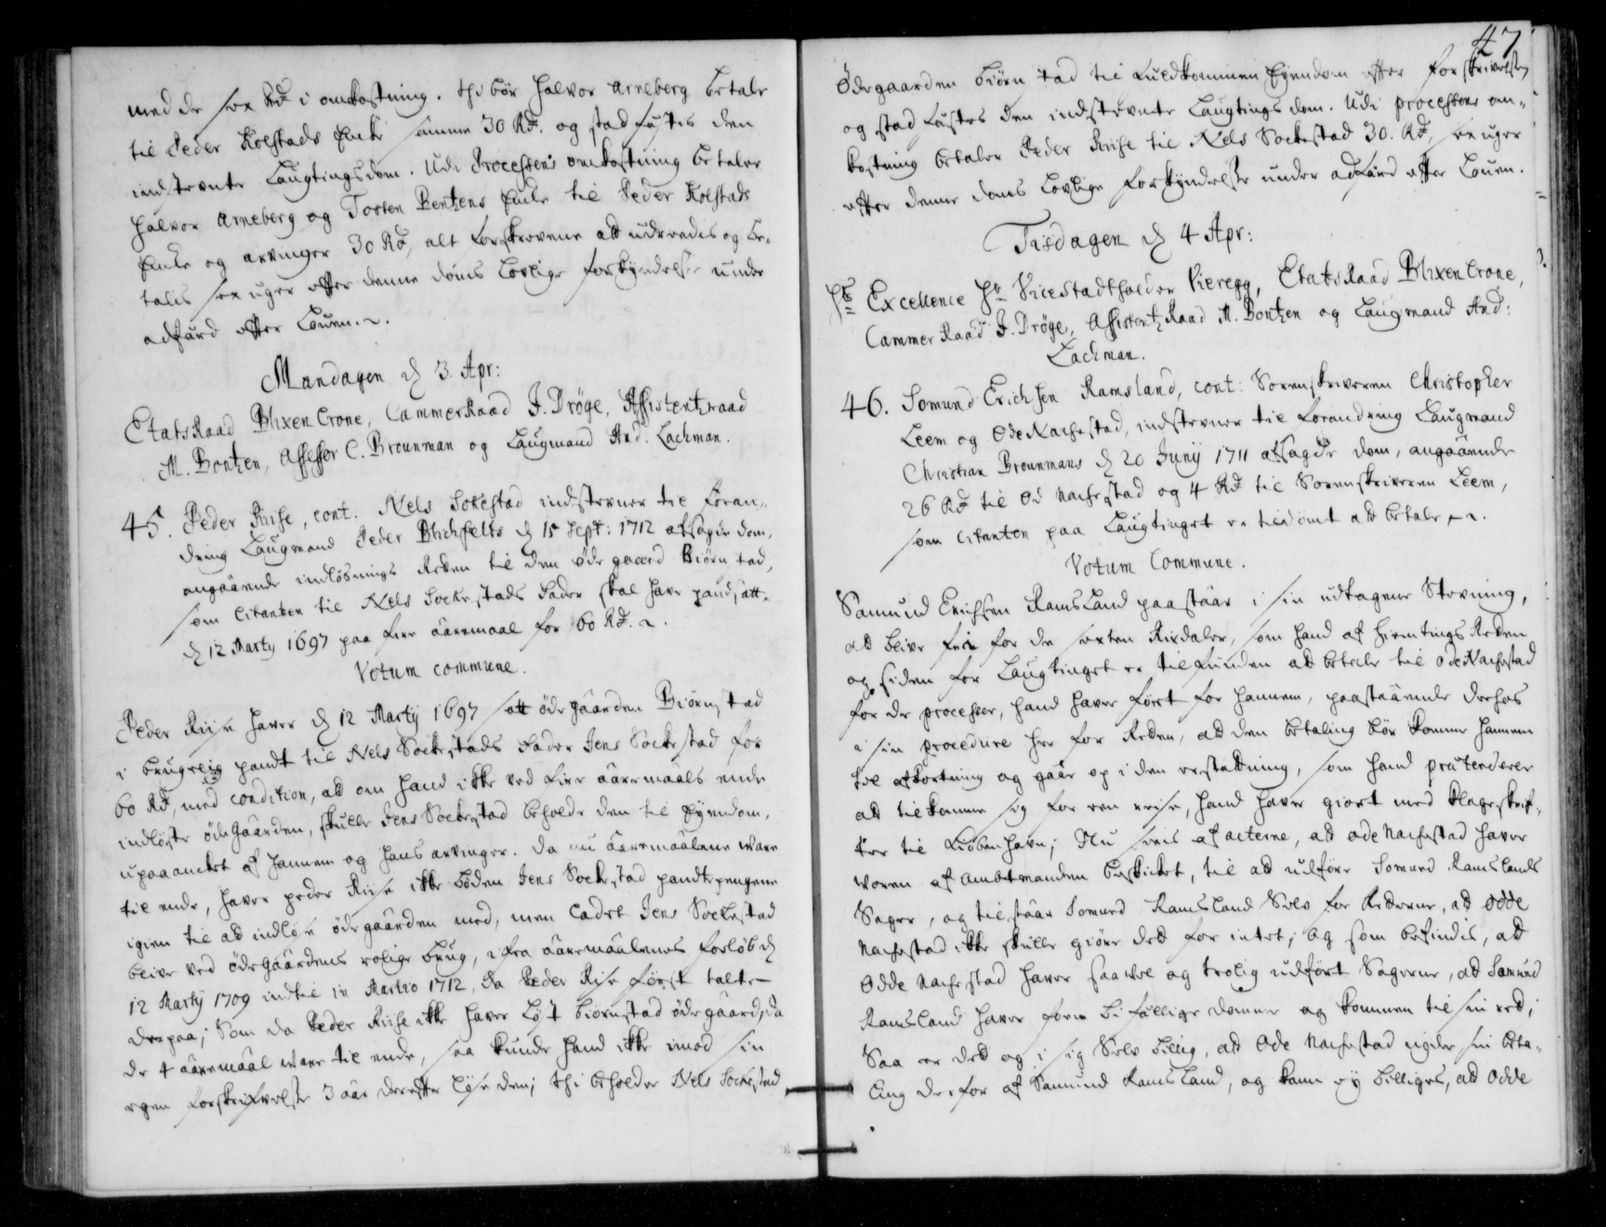 med de sex Rd i omkostning. thi bør Halvor Arneberg betale
til Peder Kolstads Enke samme 30 Rd. og stadfæstis den
indstevnte Laugtingsdom. Udi Processens omkostning betaler
Halvor Arneberg og Torsten Bentzens Enke til Peder Kolstads
Enke og arvinger 30 Rd, alt forskrevene at udreedes og be-
talis sex uger effter denne doms Lovlige forkyndelse under
adfærd effter Loven.
Mandagen d 3. Apr:
EtatsRaad Blixen Crone, CammerRaad J. Dröge, Assistentzraad
M. Bontzen, Assessor C. Brounman og Laugmand And. Lachman.
45. Peder Riise, cont: Nels Sokestad indstevner til foran-
dring Laugmand Peder Blichfelts d 15 Sept: 1712 afsagde dom,
angaaende indløsnings Retten til den øde gaard Biørnstad,
som Citanten til Nels Sockestads Fader skal have pandsatt
d 12 Marty 1697 paa fire aaremaal for 60 Rd.
Votum commune.
Peder Riise haver d 12 Martij 1697 satt ødegaarden Biørnstad
i brugelig pandt til Nels Sockestads Fader Jens Sockestad for
60 Rd, med condition, at om hand ikke ved fire aaremaals ende
indløste ødeGaarden, skulle Jens Sockestad beholde den til Eyendom,
upaaancket af hannem og hans arvinger. Da nu aaremaalene ware
til ende, haver peder Riise ikke bøden Jens Sockestad pandtepengene
igien til at indløse ødegaarden med, men ladet Jens Sockestad
blive ved ødegaardens rolige brug, ifra aaremaalenes forløb d
12 Martij 1709 indtil in Martio 1712, da Peder Riise først talte
derpaa; Som da Peder Riise ikke haver løst Biørnstad ødegaard, da
de 4 aaremaal ware til ende, saa kunde hand ikke imod sin
egen forskrifvelse 3 aar derefter løse den; thi beholder Nels Sockestad
47
Ødegaarden Biørnstad til Eyendom effter forskrivelsen
og stadfæstes den indstevnte Laugtings dom. Udi processens om-
kostning betaler Peder Riise til Nels Sockestad 30. Rd, sex uger
effter denne doms Lovlige forkyndelse under adfærd effter Loven.
Tisdagen d 4 Apr:
Hs Excellence Hr ViceStadtholder Vieregg, EtatsRaad Blixen Crone,
CammerRaad J. Dröge, AssistentzRaad M. Bontzen og Laugmand And:
Lachman.
46. Somund Erichsen Ramsland, cont: Sorenskriveren Christopher
Leem og Ode Nachestad, indstevner til forandring Laugmand
Christian Brounmans d 20 Junij 1711 afsagde dom, angaaende
26 Rd til Od Nachestad og 4 Rd til Sorenskriveren Leem,
som Citanten paa Laugtinget er tildømt at betale.
Votum Commune.
Samund Erichsen RamsLand paastaar i sin udtagene Stevning,
at blive frie for de sexten Rixdaler, som hand af Hiemtings Retten
og siden for Laugtinget er tilfunden at betale til Ode Nachestad
for de processer, hand haver ført for hannem, paastaaende derhos
i sin procedure her for Retten, at den betaling bør komme hannem
til afkortning og gaar op i den erstattning, som hand prætenderer
at tilkomme sig for een reise, hand haver giort med klageskrif-
ter til Kiøbenhavn; Nu sees af acterne, at Ode Nachestad haver
woren af Ambtmanden beskicket, til at udføre Somund Ramslands
Sager, og tilstaar Somund Ramsland Selv for Retterne, at Odde
Nachestad ikke skulle giøre det for intet; og som befindis, at
Odde Nachestad haver saa vel og trolig udført Sagerne, at Samund
Ramsland haver faaen bifallige domme og kommen til sin ret;
Saa er det og i sig Selv billig, at Ode Nachestad nyder sin beta-
ling derfor af Samund RamsLand, og kan ey billiges, at Odde